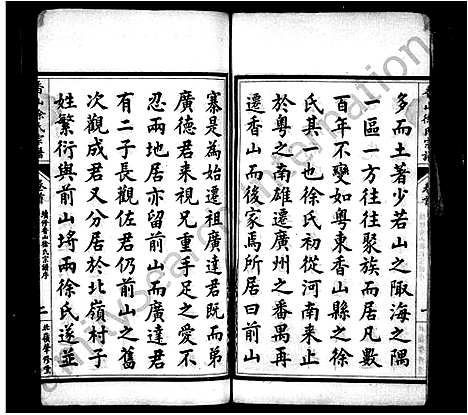 多而土著少若山之陬海之隅
一區一方往往聚族而居凡數
百年不變如粵東香山縣之徐
氏其一也徐氏初從河南來止
於粵之南雄遷廣州之番禺再
遷香山而後家焉所居曰前山
寨是為始遷祖廣達君既而弟
廣德君來視兄重手足之愛不
忍兩地居亦留前山而廣達君
有二子長觀佐君仍前山之舊
次觀成君又分居於北嶺村子
姓繁衍與前山埒兩徐氏遂並
香山徐氏宗譜
卷首
續修香山徐氏宗譜序
二
北嶺華修堂